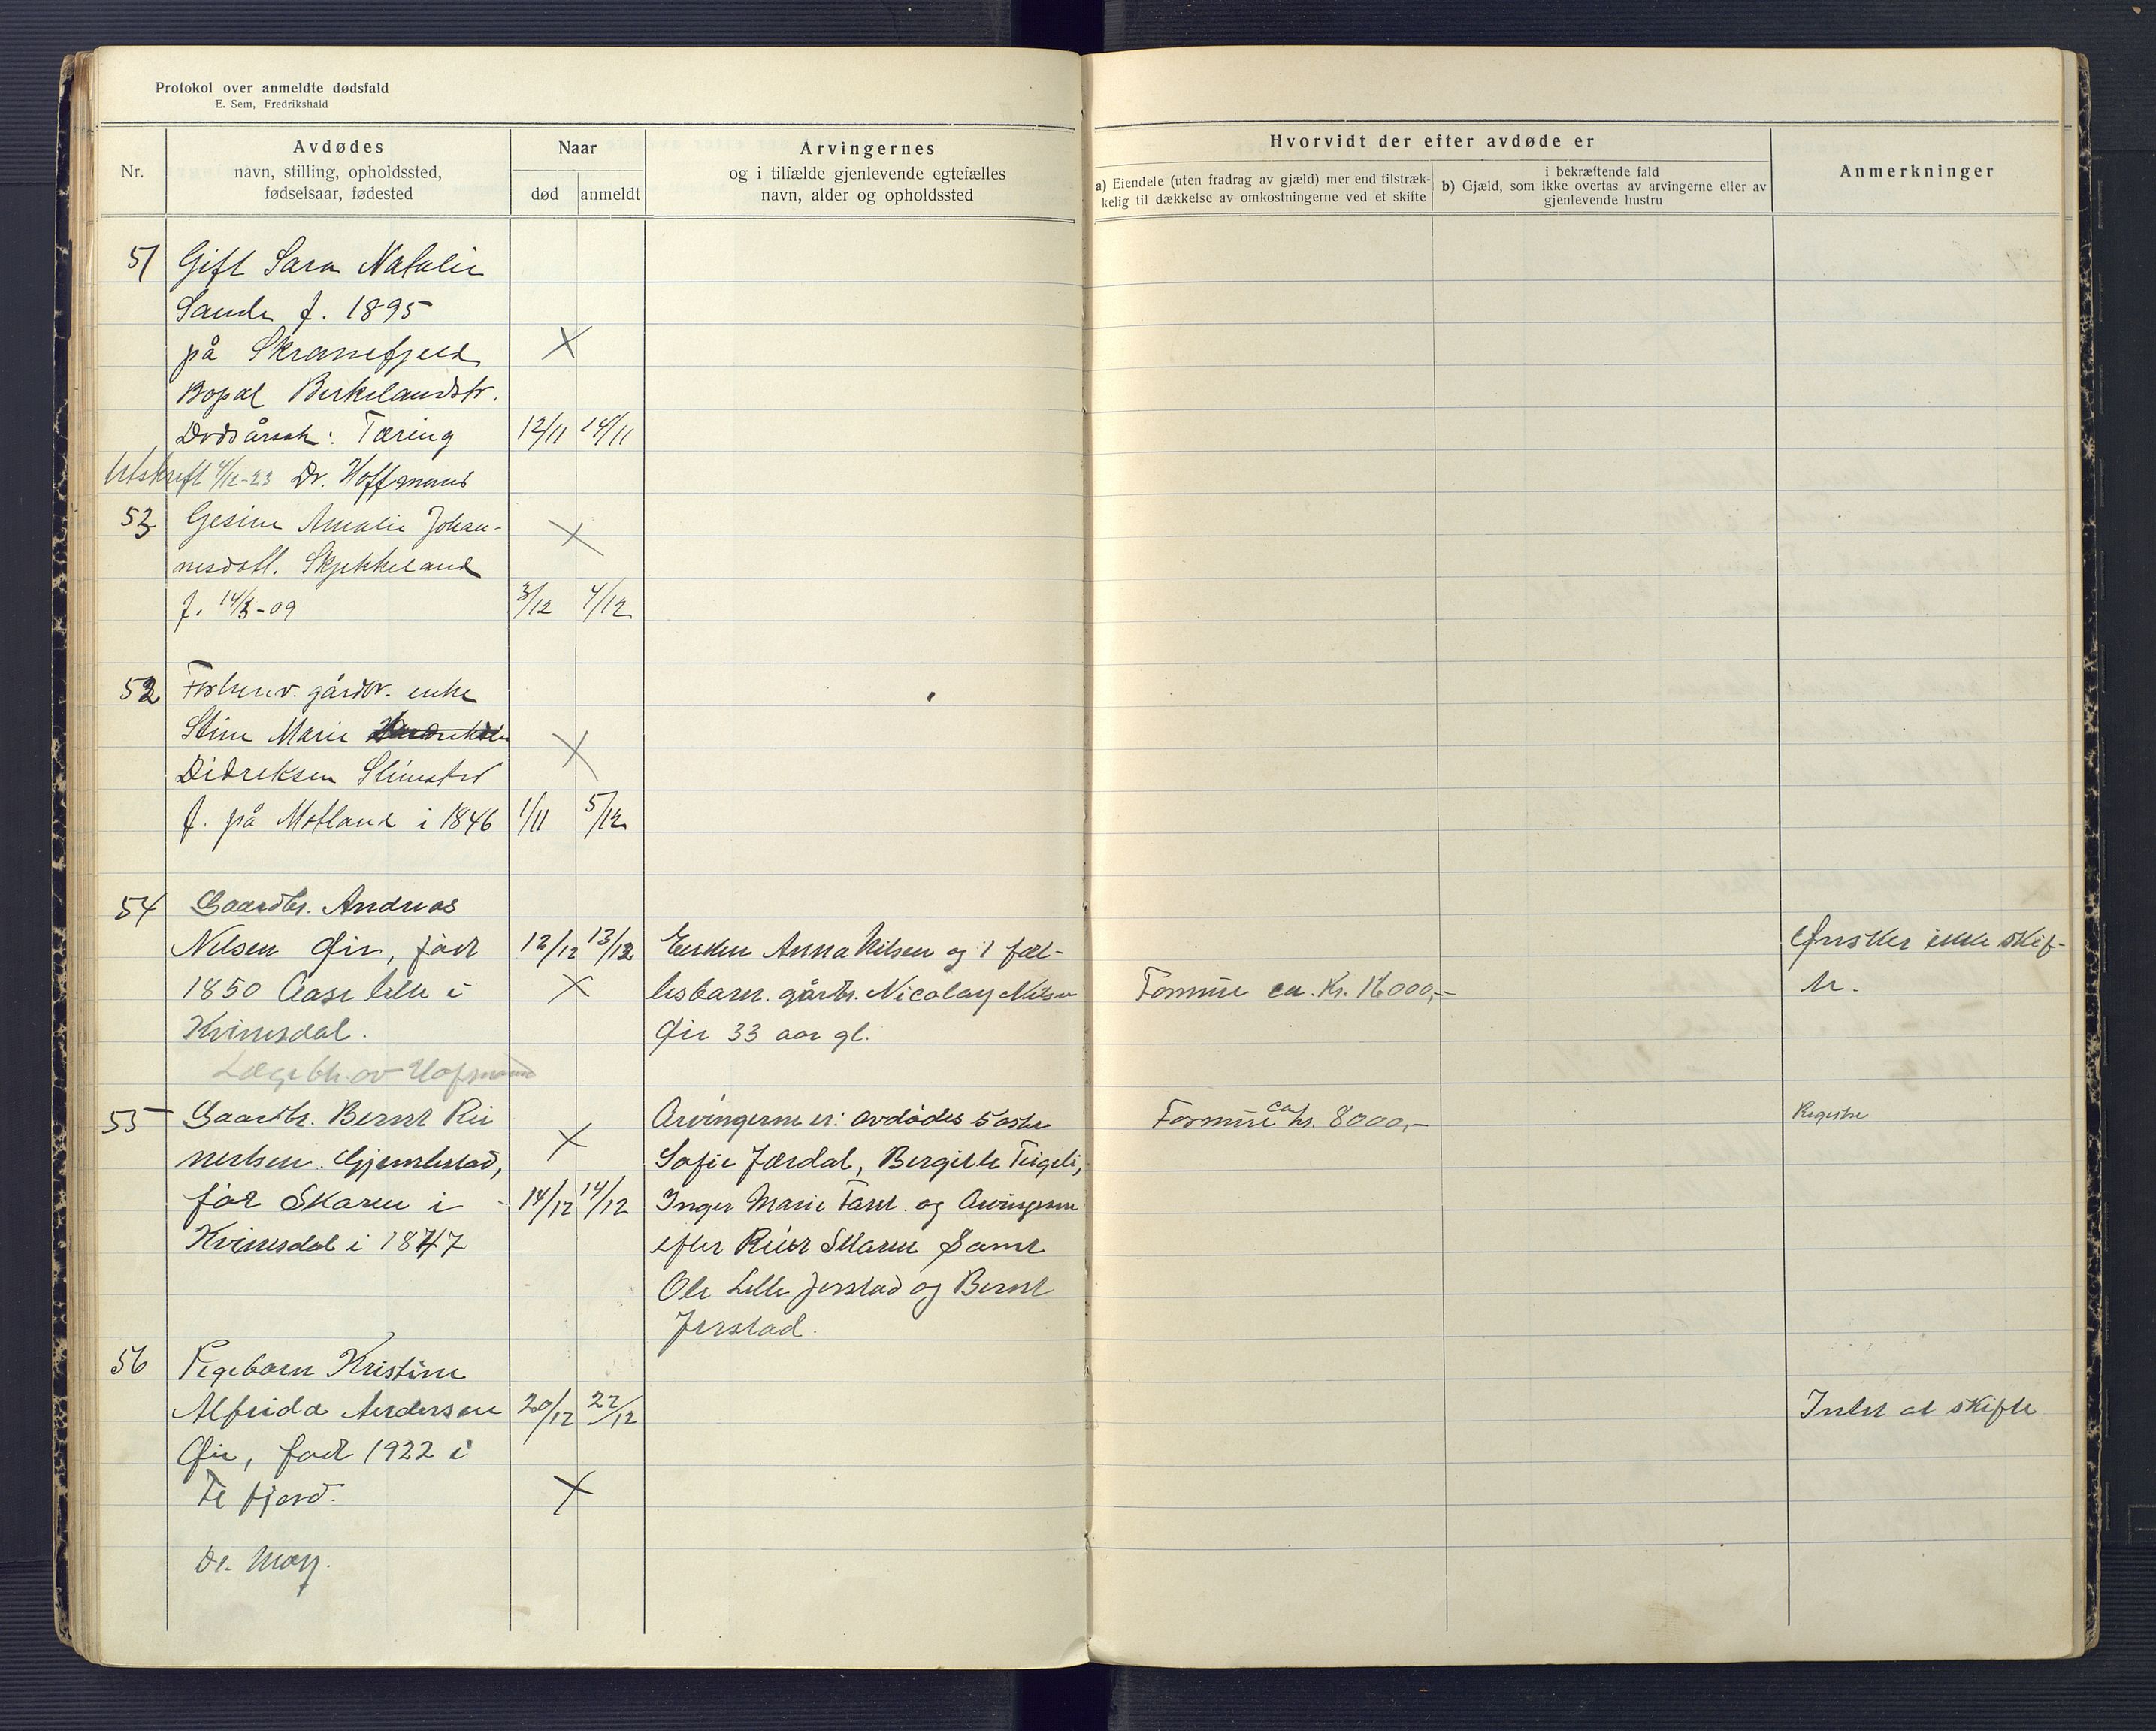 Protokol over anmeldte dødsfald
E. Sem, Fredrikshald
Nr.
Avdødes
navn, stilling, opholdssted,
fødselsaar, fødested
Naar
død
anmeldt
Arvingernes
og i tilfælde gjenlevende egtefælles
navn, alder og opholdssted
Hvorvidt der efter avdøde er
a) Eiendele (uten fradrag av gjæld) mer end tilstræk-
kelig til dækkelse av omkostningerne ved et skifte
i bekræftende fald
b) Gjæld, som ikke overtas av arvingerne eller av
gjenlevende hustru
Anmerkninger
51 Gift Sara Natalie
Sande f. 1895
på Skranefjeld
Bopæl Birkelandstr.
Dødsårsak: Tæring 12/11 14/11
Utskrift 4/12-23 Dr. Hoffmann
53 Gesine Amalie Johan-
nesdatt. Skjekkeland
f. 14/3-09 3/12 4/12
52 Forhenv. gårdbr. enke
Stine Marie
Didreksen Slimestad
f. på Motland i 1846 1/11 5/12
54 Gaardbr. Andreas
Nilsen Øie, født 12/12 13/12 Enken Anna Nilsen og 1 fæl- Ønsker ikke skif-
1850 Aase lille i lesbarn. gårdbr. Nicolay Nilsen Formue ca. Kr. 16000,- te.
Kvinesdal. Øie 33 aar gl.
Lægebh. av Hofmann
55 Gaardbr. Bernt Rei Arvingerne er: avdødes søstre Formue ca kr. 8000,- Registre
nertsen. Gjemlestad, Sofie Jærdal, Bergitte Teigeli,
født Skaren i 14/12 14/12 Inger Marie Faret. og Arvingerne
Kvinesdal i 1847 efter Reier Skaren Samt
Ole Lille Jerstad og Bernt
Jerstad.
56 Pigebarn Kristine
Alfrida Andersen 20/12 22/12 Intet at skifte
Øie, født 1922 i
Fefjord.
Dr. May.